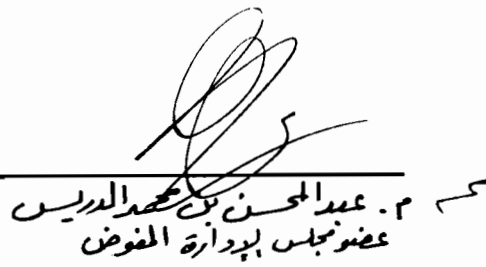 م. عبدالمحسن بن محمد الدريس
عضو مجلس الإدارة المفوض